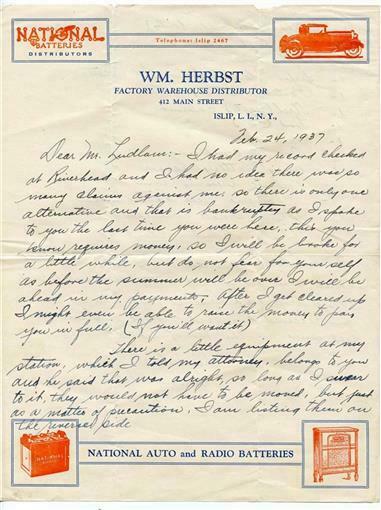 NATIONAL
BATTERIES
DISTRIBUTORS
Telephone: Islip 2467
WM. HERBST
FACTORY WAREHOUSE DISTRIBUTOR
412 MAIN STREET
ISLIP, L. I., N. Y.,
Feb. 24, 1937
Dear Mr. Ludlam:- I had my record checked
at Riverhead and I had no idea there was so
many claims against me. so there is only one
alternative and that is bankruptsy as I spoke
to you the last time you were here, this you
know requires money, so I will be broke for
a little while, but do not fear for your self
as before the summer will be over I will be
ahead in my payments, After I get cleared up
I might even be able to raise the money to pay
you in full, (If you'll want it)
There is a little equipment at my
station, which I told my attorney, belongs to you
and he said that was alright, so long as I swear
to it, they would not have to be moved, but just
as a matter of precaution. I am listing them on
the reverse side
NATIONAL
NATIONAL AUTO and RADIO BATTERIES